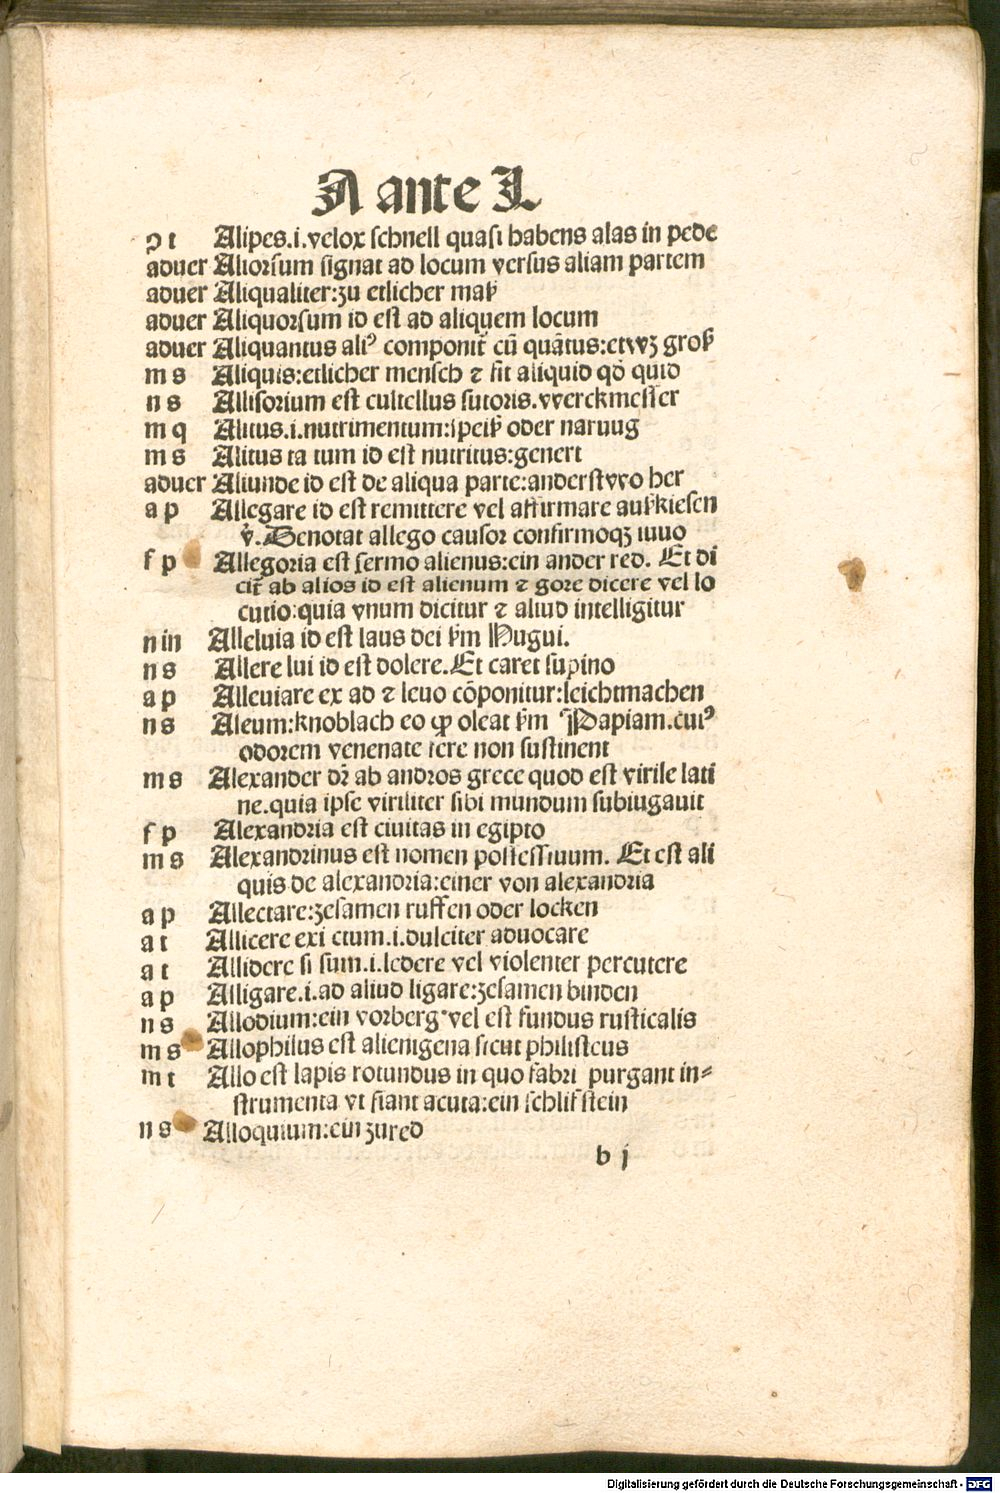 A ante L
ꝯ t Alipes.i.velox schnell quasi habens alas in pede
aduer Aliorsum signat ad locum versus aliam partem
aduer Aliqualiter:zu etlicher maß
aduer Aliquorsum id est ad aliquem locum
aduer Aliquantus aliꝰ componit̃ cũ quãtus:etwz groß
m s Aliquis:etlicher mensch ⁊ fit aliquid qđ quid
n s Allisorium est cultellus sutoris.werckmesser
m q Alitus.i.nutrimentum:speiß oder narung
m s Alitus ta tum id est nutritus:genert
aduer Aliunde id est de aliqua parte:anderstwo her
a p Allegare id est remittere vel affirmare außkiesen
v̉.Denotat allego causor confirmoqꝫ iuuo
f p Allegoria est sermo alienus:ein ander red. Et di
cit̃ ab alios id est alienum ⁊ gore dicere vel lo
cutio:quia vnum dicitur ⁊ aliud intelligitur
n in Alleluia id est laus dei ẜm Hugui.
n s Allere lui id est dolere.Et caret supino
a p Alleuiare ex ad ⁊ leuo cõponitur:leichtmachen
n s Aleum:knoblach eo ꝙ oleat ẜm Papiam.cuiꝰ
odorem venenate fere non sustinent
m s Alexander dr̃ ab andros grece quod est virile lati
ne.quia ipse viriliter sibi mundum subiugauit
f p Alexandria est ciuitas in egipto
m s Alexandrinus est nomen possessiuum. Et est ali
quis de alexandria:einer von alexandria
a p Allectare:zesamen ruffen oder locken
a t Allicere exi ctum.i.dulciter aduocare
a t Allidere si sum.i.ledere vel violenter percutere
a p Alligare.i.ad aliud ligare:zesamen binden
n s Allodium:ein vorberg vel est fundus rusticalis
m s Allophilus est alienigena sicut philisteus
m t Allo est lapis rotundus in quo fabri purgant in⸗
strumenta vt fiant acuta:ein schlif stein
n s Alloquium:ein zured
b j
Digitalisierung gefördert durch die Deutsche Forschungsgemeinschaft - DFG